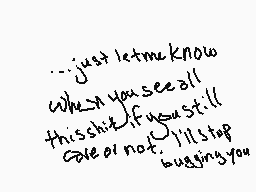 ...just let me know
when you see all
this shit, if you still
care or not. I'll stop
bugging you